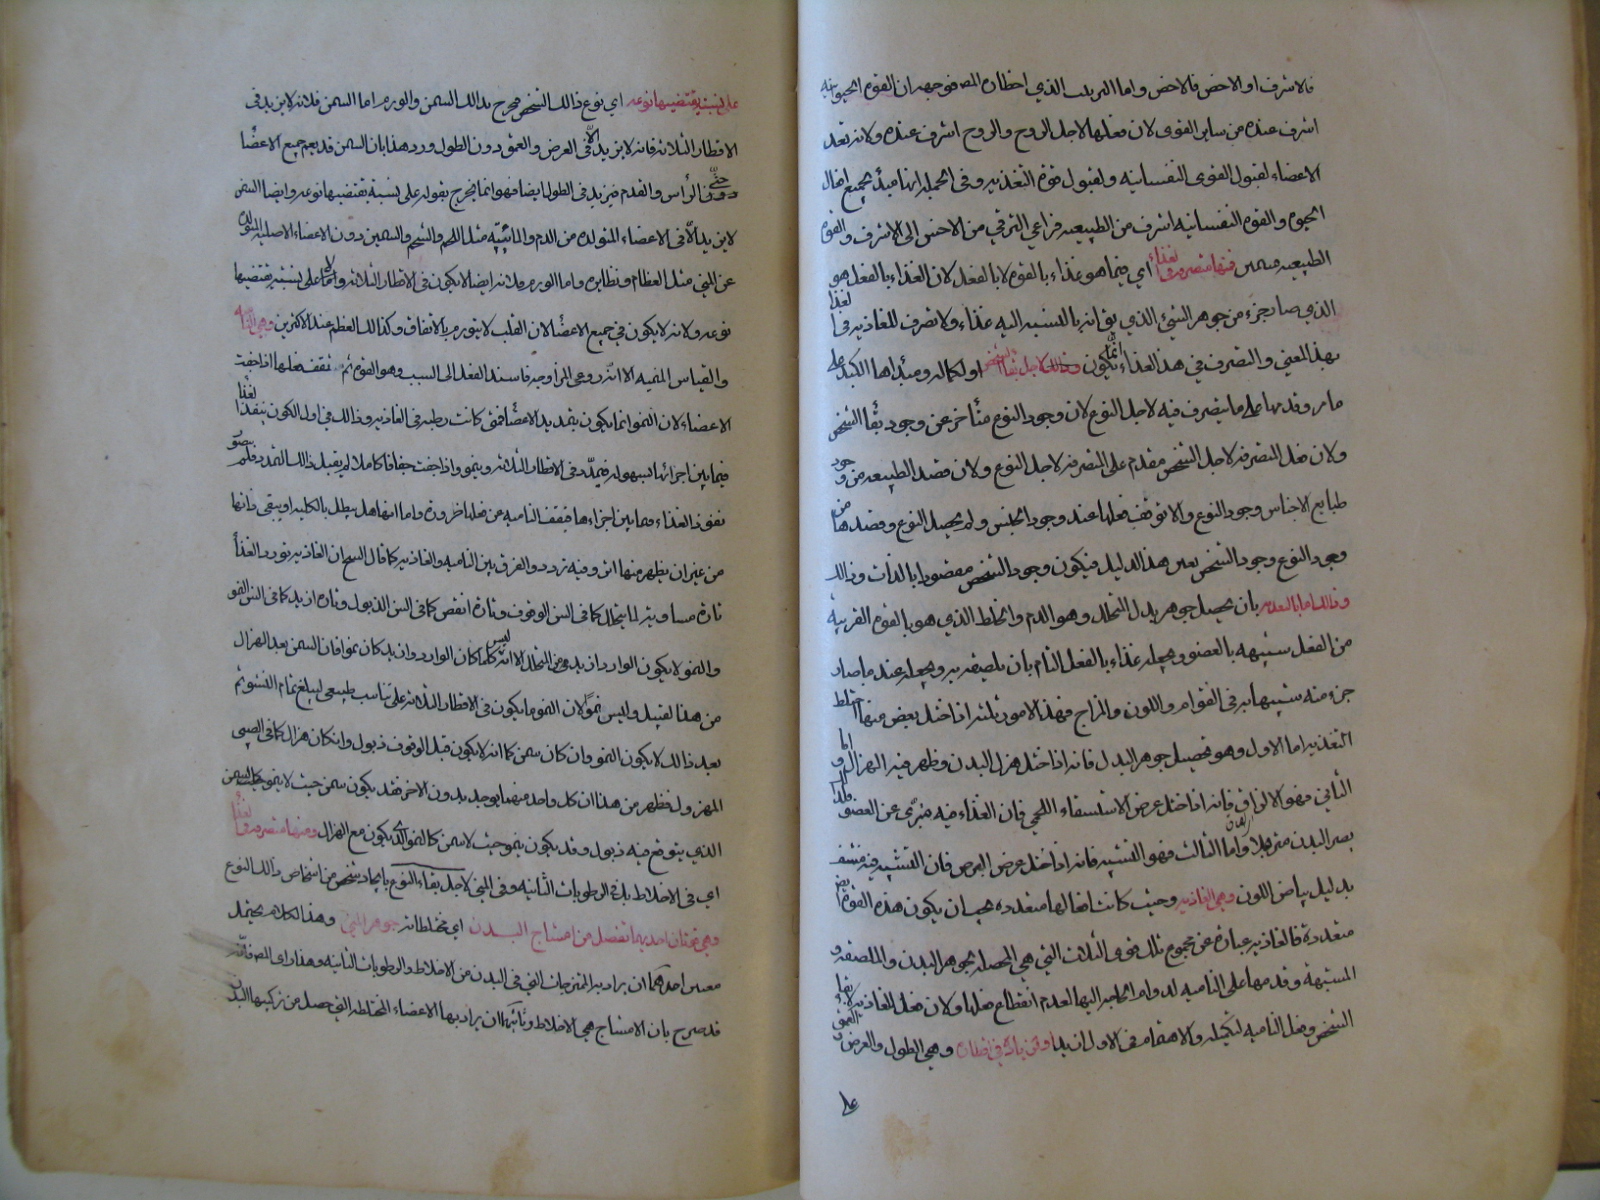 فالاشرف او الاخص فالاخص واما الترتيب الذي اختاره المص فوجهه ان القوة الحيوانية
اشرف عنده من ساير القوى لان فعلها لاجل الروح والروح اشرف عنده ولانه تعد
الاعضاء لقبول القوى النفسانية ولقبول قوة التغذيه وفي الجملة انها مبدأ لجميع افعال
الحيوة والقوة النفسانية اشرف من الطبيعيه فراعي الترقي من الاخس الى الاشرف والقوة
الطبيعيه فمنها متصرفه في الغذاء اي فيما هو غذاء بالقوة لا بالفعل لان الغذاء بالفعل هو
الذي صار جزء من جوهر الشئ الذي يق انه بالنسبه اليه غذاء ولا تصرف للغاذيه في الغذاء
بهذا المعني والتصرف في هذا الغذاء انما يكون وذلك لاجل بقاء الشخص او لكماله ومبدأها الكبد على
ما مر وقدمها على ما يتصرف فيه لاجل النوع لان وجود النوع متأخر عن وجود بقاء الشخص
ولان فعل التصرف لاجل الشخص مقدم على التصرف لاجل النوع ولان قصد الطبيعه من وجود
طبايع الاجناس وجود النوع والا توقف فعلها عند وجود الجنس ولم يحصل النوع وقصدها من
وجود النوع وجود الشخص بعين هذا الدليل فيكون وجود الشخص مقصودا بالذات وذلك
وذلك اما بالتغذيه بان يحصل جوهر بدل التحلل وهو الدم والخلط الذي هو بالقوة القريبة
من الفعل شبيهه بالعضو ويجعله غذاء بالفعل التام بان تلصقه به ويجعله عند ما صار
جزء منه شبيها به في القوام واللون والمزاج فهذا الامور ثلثه اذا اختل بعض منها اختلط
التغذيه اما الاول وهو تحصيل جوهر البدل فانه اذا اختل هزل البدن وظهر فيه الهزال واما
الثاني فهو الالزاق فانه اذا اختل عرض الاستسقاء اللحمي فان الغذاء فيه متبرى عن العضو ولذا
يصير البدن مترهلا واما الثالث فهو التشبيه فانه اذا اختل عرض البرص فان التشبيه فيه منتف
بدليل بياض اللون وهي الغاذيه وحيث كانت افعالها متعدده يجب ان يكون هذه القوة ايض
متعددة فالغاذيه عبارة عن مجموع تلك قوى الثلاث التي هي المحصله لجوهر البدن والملصقه و
المشبهة وقدمها على الناميه لدوام الحاجه اليها لعدم انقطاع فعلها ولان فعل الغاذيه لاجل بقاء
الشخص وفعل الناميه لتكميله والاهتمام في الاول ازيد او تزيد في اقطاره وهي الطول والعرض والعمق
على
على نسبة يقتضيها نوعه اي نوع ذلك الشخص فخرج بذلك السمن والورم اما السمن فلانه لا يزيد في
الاقطار الثلاثه فانه لا يزيد الا في العرض والعمق دون الطول ورد هذا بان السمن قد يعم جميع الاعضاء
حتى الرأس والقدم فيزيد في الطول ايضا فهو انما يخرج بقوله على نسبة يقتضيها نوعه وايضا السمن
لا يزيد الا في الاعضاء المتولده من الدم والمائيه مثل اللحم والشحم والسمين دون الاعضاء الاصليه المتولده
عن المني مثل العظام ونظايره واما الورم فلانه ايضا لا يكون في الاقطار الثلاثه ولا على نسبة يقتضيها
نوعه ولانه لا يكون في جميع الاعضاء لان القلب لا يتورم بالاتفاق وكذلك العظم عند الاكثرين وهي الناميه
والقياس المنميه الا انه روعي المزاوجه فاسند الفعل الى السبب وهو القوة ثم تقف فعلها اذا جفت
الاعضاء لان النمو انما يكون بتمديد الاعضاء فمتى كانت رطبه في الغاذيه وذلك في اول الكون ينفذ الغذاء
فيما بين اجزائها بسهوله فيمدد في الاقطار الثلاثه وينمو واذا جفت جفافا كاملا لم يقبل ذلك التمدد فلم يتصور
نفوذ الغذاء فيما بين اجزاءها فيقف الناميه عن فعلها ضرورة واما انها هل يبطل بالكليه او يبقى ذاتها
من غير ان يظهر منها اثر وفيه تردد والفرق بين الناميه والغاذيه كما قال الشيخ ان الغاذيه تورد الغذاء
تارة مساويه لما يتحلل كما في السن الوقوف وتارة انقص كما في السن الذبول وتارة ازيد كما في السن النمو
والنمو لا يكون الوارد ازيد من التحلل الا انه ليس كلما كان الوارد ازيد كان نموا فان السمن بعد الهزال
من هذا القبيل وليس نموا لان النمو ما يكون في الاقطار الثلاثه على تناسب طبيعي ليبلغ تمام النشو ثم
بعد ذلك لا يكون النمو وان كان سمن كما انه لا يكون قبل الوقوف ذبول وان كان هزال كما في الصبي
المهزول فظهر من هذا ان كل واحد منهما يوجد بدون الاخر فقد يكون سمن حيث لا نمو كالسمن
الذي يتوقع فيه ذبول وقد يكون نمو حيث لا سمن كالنمو الذي يكون مع الهزال ومنها متصرفه في الغذاء
اي في الاخلاط بل في الرطوبات الثانية وفي المني لاجل بقاء النوع بايجاد شخص من اشخاص ذلك النوع
وهي قوتان احديهما تفصل من امشاج البدن اي مختلطاته جوهر المني وهذا الكلام يحتمل
معنين احدهما ان يراد به الممتزجات التي في البدن من الاخلاط والرطوبات الثانية وهذا راي المص فانه
قد صرح بان الامشاج هي الاخلاط وثانيها ان يراد بها الاعضاء المختلطه التي حصل من تركيبها البدن